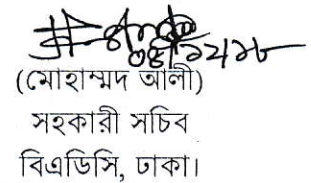 (মোহাম্মদ আলী)
সহকারী সচিব
বিএডিসি, ঢাকা।